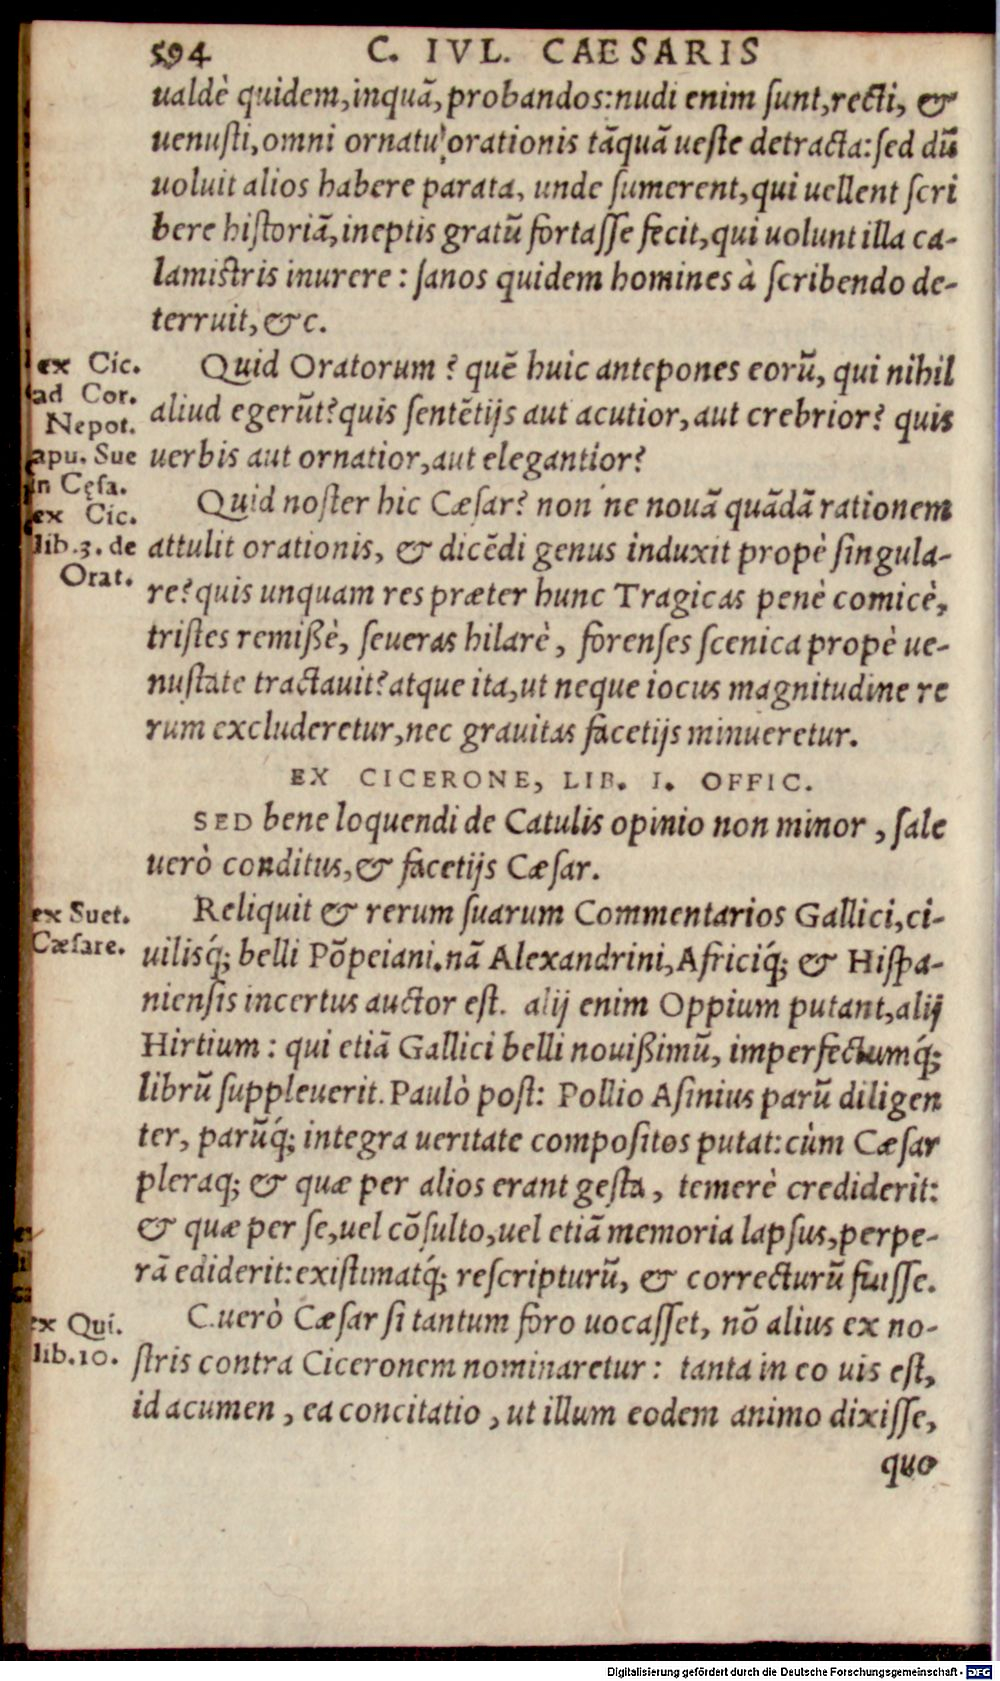 594 C. IVL. CAESARIS
ualdè quidem, inquā, probandos: nudi enim sunt, recti, &
uenusti, omni ornatu orationis tāquā ueste detracta: sed dū
uoluit alios habere parata, unde sumerent, qui uellent scri
bere historiā, ineptis gratū fortasse fecit, qui uolunt illa ca-
lamistris inurere: sanos quidem homines à scribendo de-
terruit, &c.
ex Cic.
ad Cor.
Nepot.
apu. Sue
in Cęsa.
Quid Oratorum? quē huic antepones eorū, qui nihil
aliud egerūt? quis sentētijs aut acutior, aut crebrior? quis
uerbis aut ornatior, aut elegantior?
ex Cic.
lib.3. de
Orat.
Quid noster hic Cæsar? non ne nouā quādā rationem
attulit orationis, & dicēdi genus induxit propè singula-
re? quis unquam res præter hunc Tragicas penè comicè,
tristes remißè, seueras hilarè, forenses scenica propè ue-
nustate tractauit? atque ita, ut neque iocus magnitudine re
rum excluderetur, nec grauitas facetijs minueretur.
EX CICERONE, LIB. I. OFFIC.
SED bene loquendi de Catulis opinio non minor, sale
uerò conditus, & facetijs Cæsar.
ex Suet.
Cæsare.
Reliquit & rerum suarum Commentarios Gallici, ci-
uilisq́; belli Pōpeiani. nā Alexandrini, Africiq́; & Hispa-
niensis incertus auctor est. alij enim Oppium putant, alij
Hirtium: qui etiā Gallici belli nouißimū, imperfectumq́;
librū suppleuerit. Paulò post: Pollio Asinius parū diligen
ter, parūq́; integra ueritate compositos putat: cùm Cæsar
pleraq; & quæ per alios erant gesta, temerè crediderit:
& quæ per se, uel cōsulto, uel etiā memoria lapsus, perpe-
rā ediderit: existimatq́; rescripturū, & correcturū fuisse.
ex Qui.
lib.10.
C. uerò Cæsar si tantum foro uocasset, nō alius ex no-
stris contra Ciceronem nominaretur: tanta in eo uis est,
id acumen, ea concitatio, ut illum eodem animo dixisse,
quo
Digitalisierung gefördert durch die Deutsche Forschungsgemeinschaft - DFG